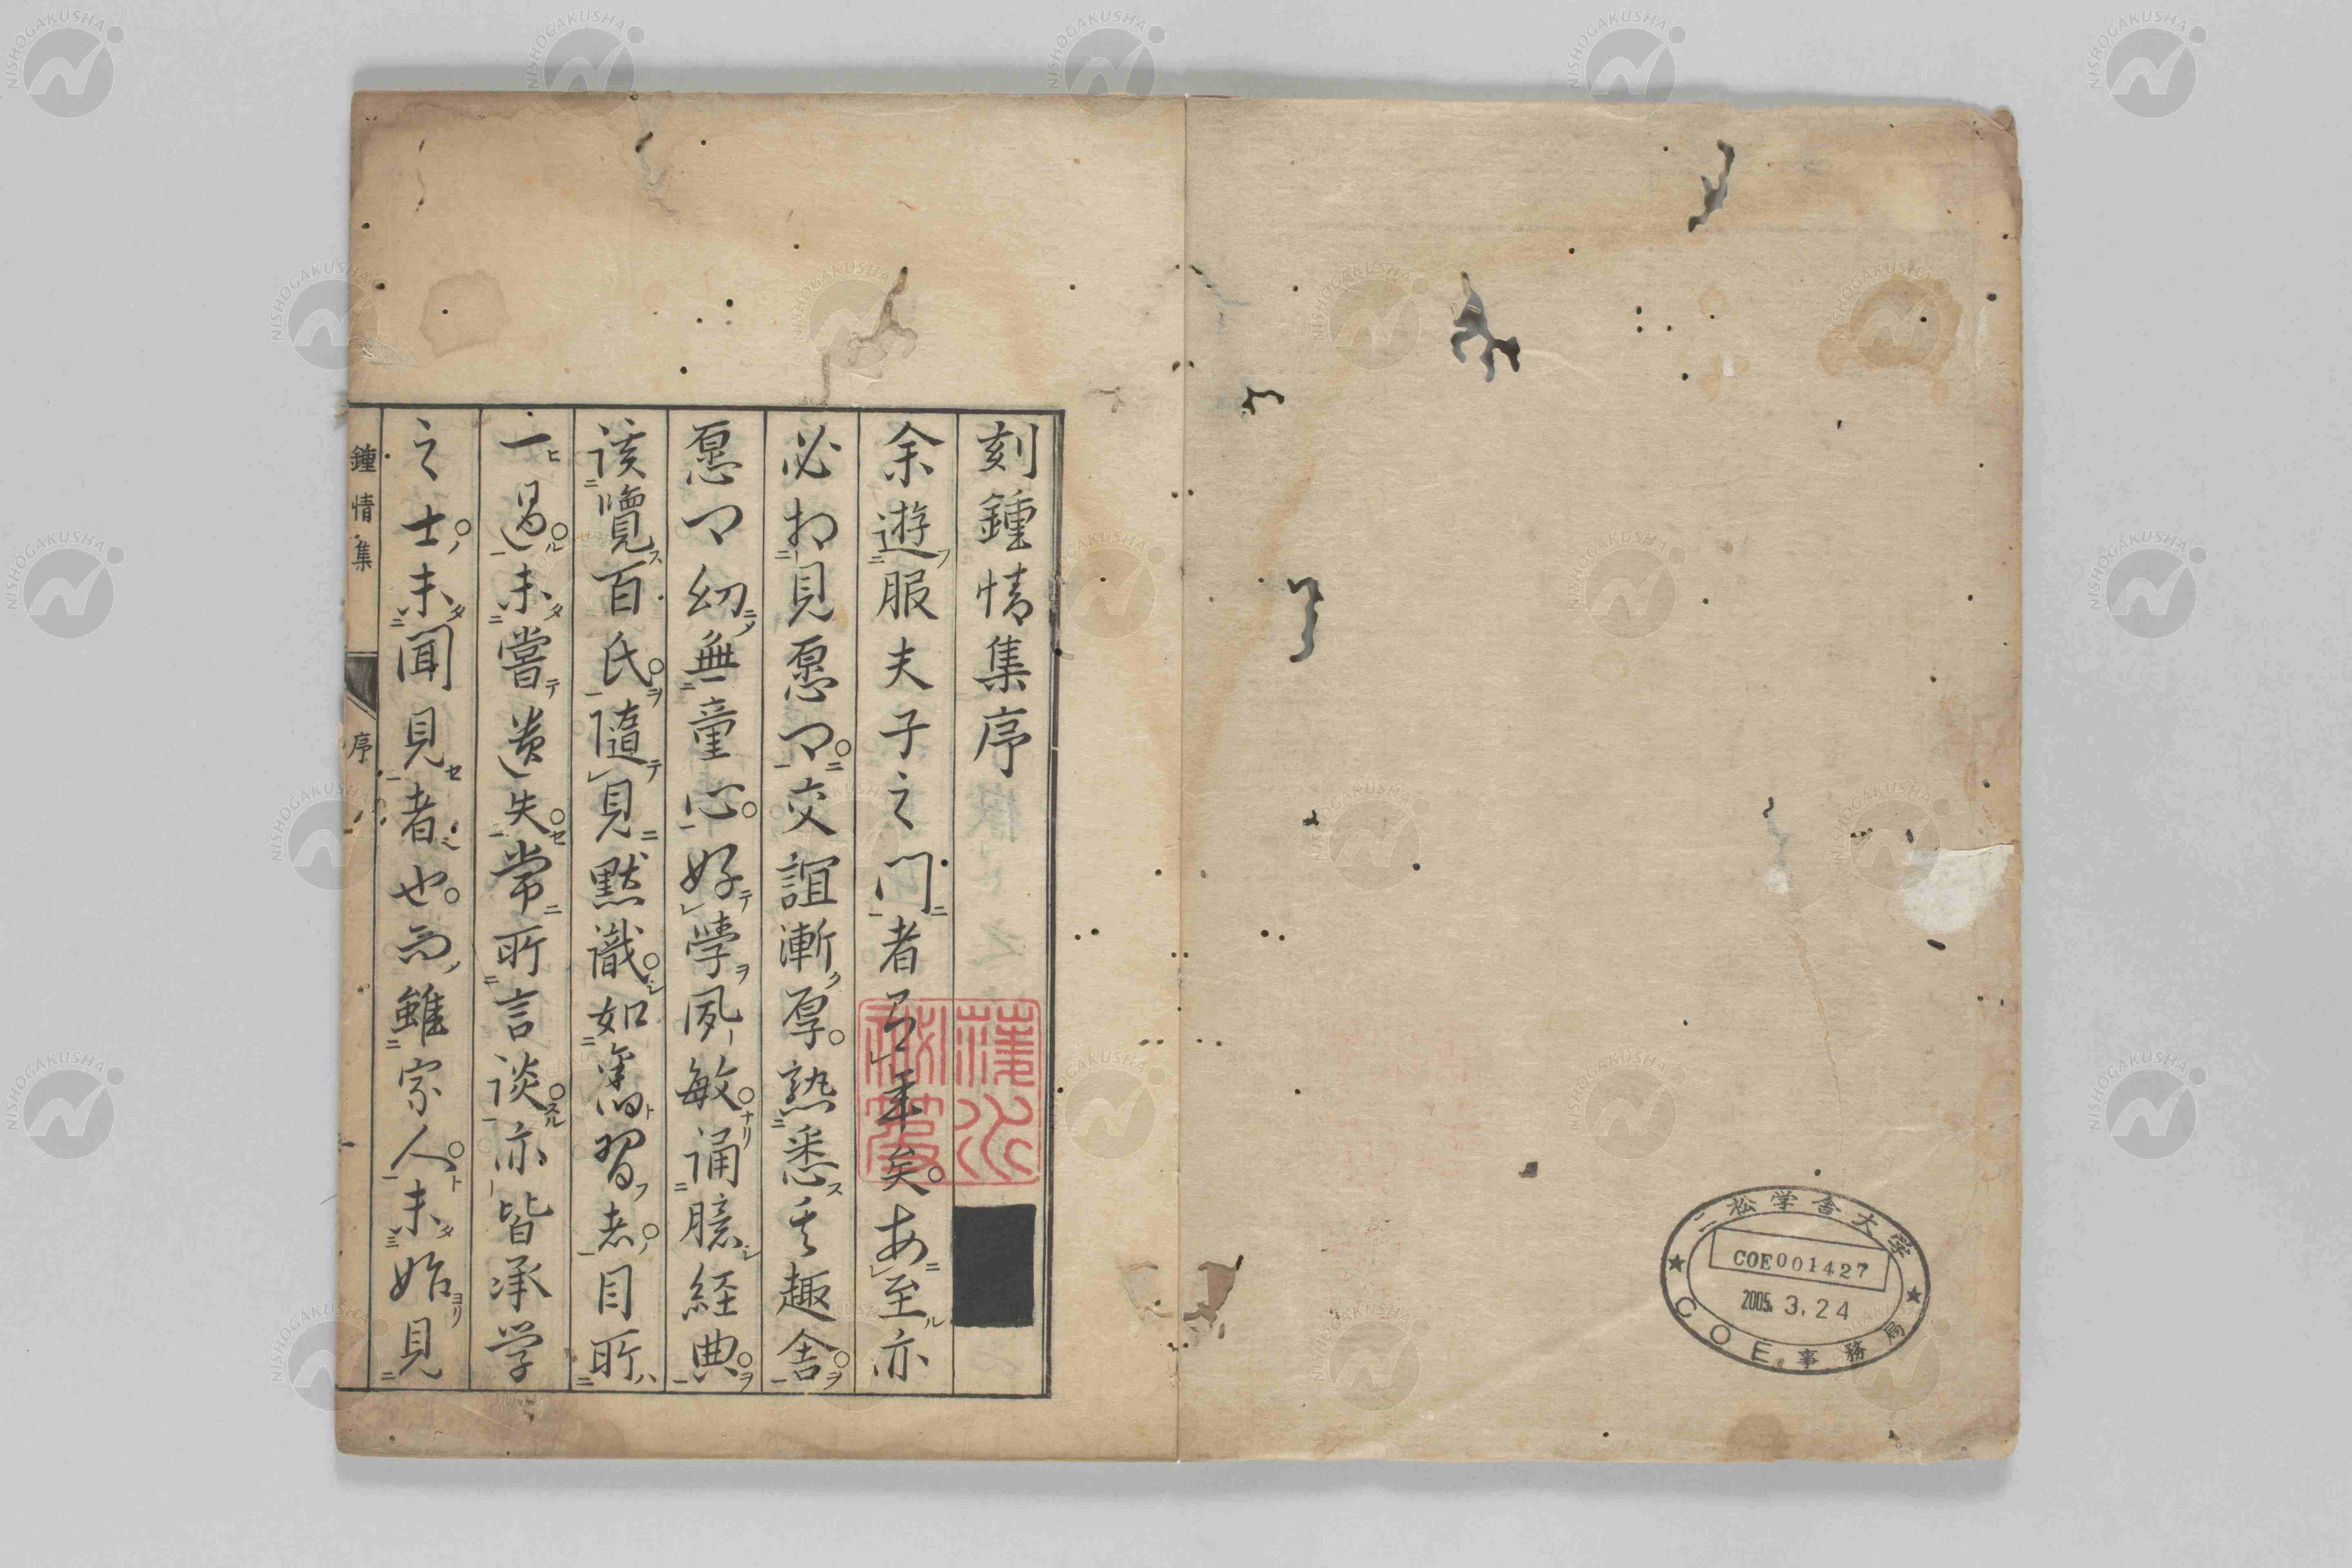 刻鍾情集序
余遊服夫子之門者有年矣毎至亦
必相見愿卿交誼漸厚熟悉其趣舎
愿卿幼無童心好學夙敏誦臆経典
該覽百氏隨見默識如舊習者目所
一過未嘗遺失常所言談亦皆承学
之士未聞見者也而雖家人未始見
鍾情集
序
二松学舎大学
COE001427
2005. 3. 24
COE事務局